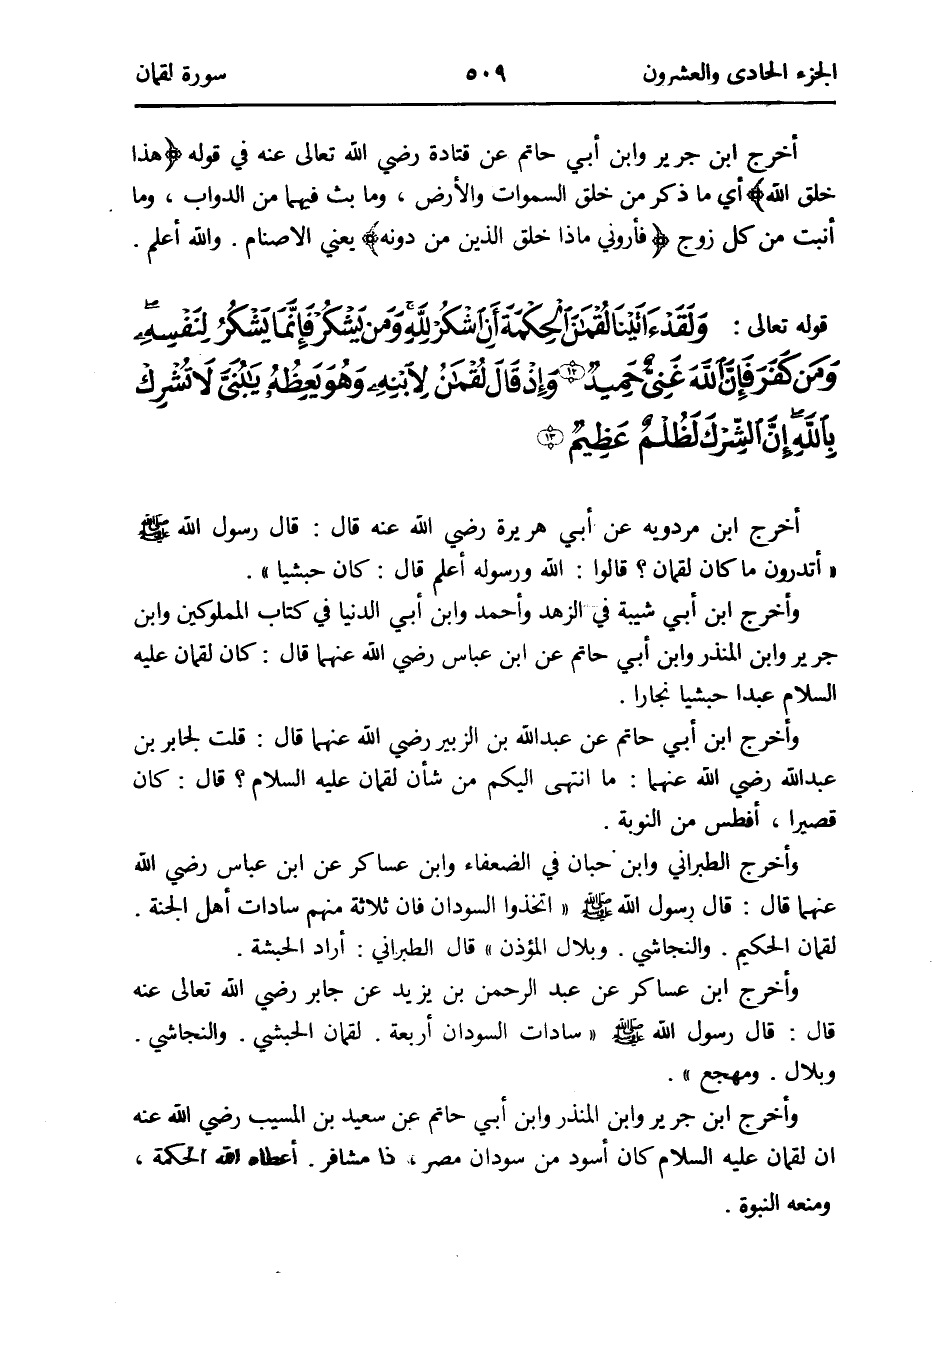 الجزء الحادى والعشرون ٥٠٩ سورة لقمان
أخرج ابن جرير وابن أبي حاتم عن قتادة رضي الله تعالى عنه في قوله ﴿هذا
خلق الله﴾ أي ما ذكر من خلق السموات والأرض ، وما بث فيهما من الدواب ، وما
أنبت من كل زوج ﴿فأروني ماذا خلق الذين من دونه﴾ يعني الاصنام . والله أعلم .
قوله تعالى : وَلَقَدْ ءَاتَيْنَا لُقْمَٰنَ ٱلْحِكْمَةَ أَنِ ٱشْكُرْ لِلَّهِ ۚ وَمَن يَشْكُرْ فَإِنَّمَا يَشْكُرُ لِنَفْسِهِۦ ۖ
وَمَن كَفَرَ فَإِنَّ ٱللَّهَ غَنِىٌّ حَمِيدٌ ﴿١٢﴾ وَإِذْ قَالَ لُقْمَٰنُ لِٱبْنِهِۦ وَهُوَ يَعِظُهُۥ يَٰبُنَىَّ لَا تُشْرِكْ
بِٱللَّهِ ۖ إِنَّ ٱلشِّرْكَ لَظُلْمٌ عَظِيمٌ ﴿١٣﴾
أخرج ابن مردويه عن أبي هريرة رضي الله عنه قال : قال رسول الله ﷺ
« أتدرون ما كان لقمان ؟ قالوا : الله ورسوله أعلم قال : كان حبشيا » .
وأخرج ابن أبي شيبة في الزهد وأحمد وابن أبي الدنيا في كتاب المملوكين وابن
جرير وابن المنذر وابن أبي حاتم عن ابن عباس رضي الله عنهما قال : كان لقمان عليه
السلام عبدا حبشيا نجارا .
وأخرج ابن أبي حاتم عن عبدالله بن الزبير رضي الله عنهما قال : قلت لجابر بن
عبدالله رضي الله عنهما : ما انتهى اليكم من شأن لقمان عليه السلام ؟ قال : كان
قصيرا ، أفطس من النوبة .
وأخرج الطبراني وابن حبان في الضعفاء وابن عساكر عن ابن عباس رضي الله
عنهما قال : قال رسول الله ﷺ « اتخذوا السودان فان ثلاثة منهم سادات أهل الجنة .
لقمان الحكيم . والنجاشي . وبلال المؤذن » قال الطبراني : أراد الحبشة .
وأخرج ابن عساكر عن عبد الرحمن بن يزيد عن جابر رضي الله تعالى عنه
قال : قال رسول الله ﷺ « سادات السودان أربعة . لقمان الحبشي . والنجاشي .
وبلال . ومهجع » .
وأخرج ابن جرير وابن المنذر وابن أبي حاتم عن سعيد بن المسيب رضي الله عنه
ان لقمان عليه السلام كان أسود من سودان مصر ، ذا مشافر . أعطاه الله الحكمة ،
ومنعه النبوة .